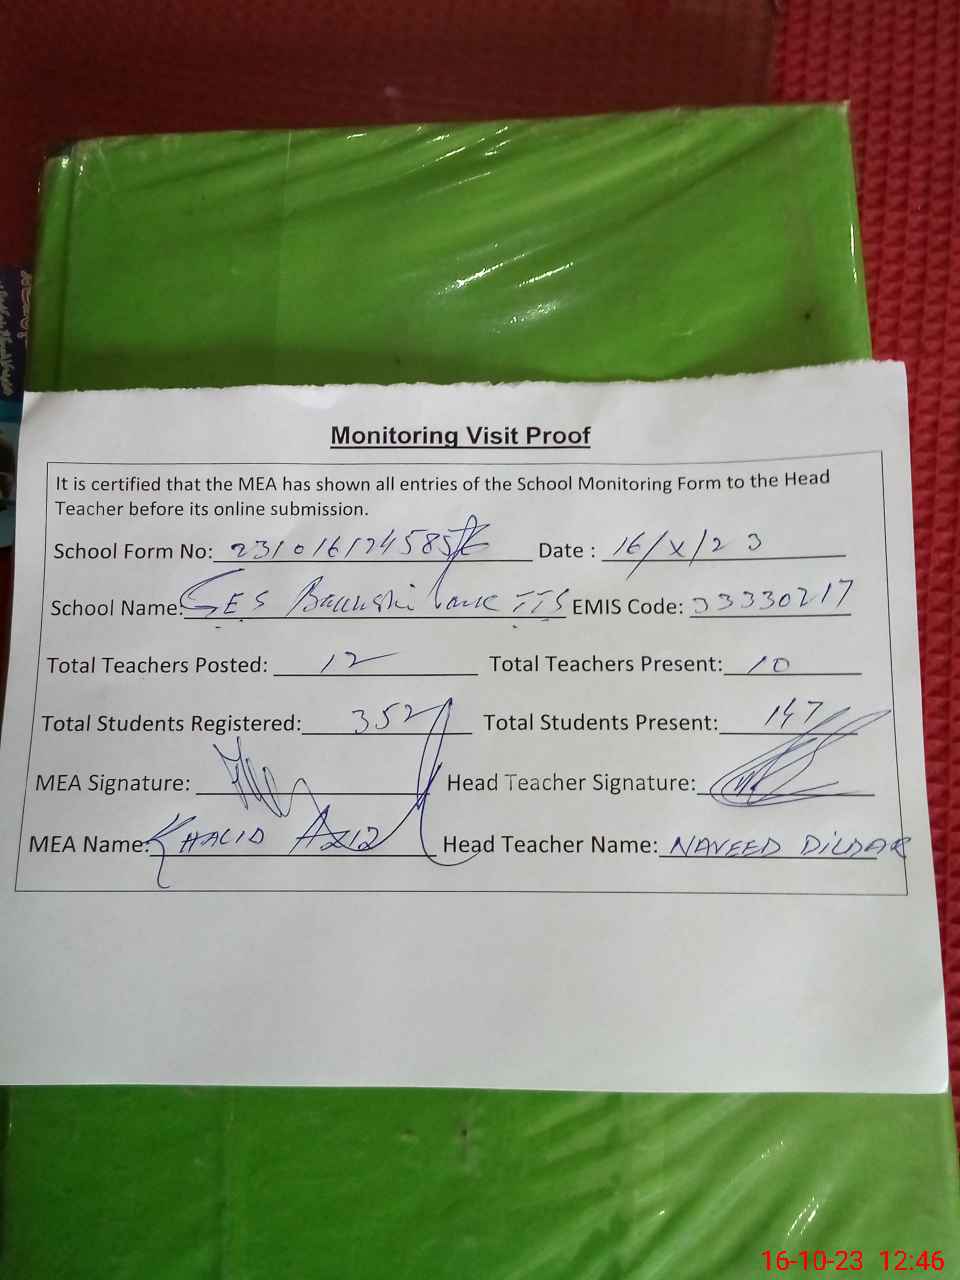 Monitoring Visit Proof
It is certified that the MEA has shown all entries of the School Monitoring Form to the Head
Teacher before its online submission.
School Form No: Date : 16/X/23
School Name: GES EMIS Code: 33330217
Total Teachers Posted: 12 Total Teachers Present: 10
Total Students Registered: 352 Total Students Present: 147
MEA Signature: Head Teacher Signature:
MEA Name: KHALID AZIZ Head Teacher Name: NAVEED DILDAR
16-10-23 12:46